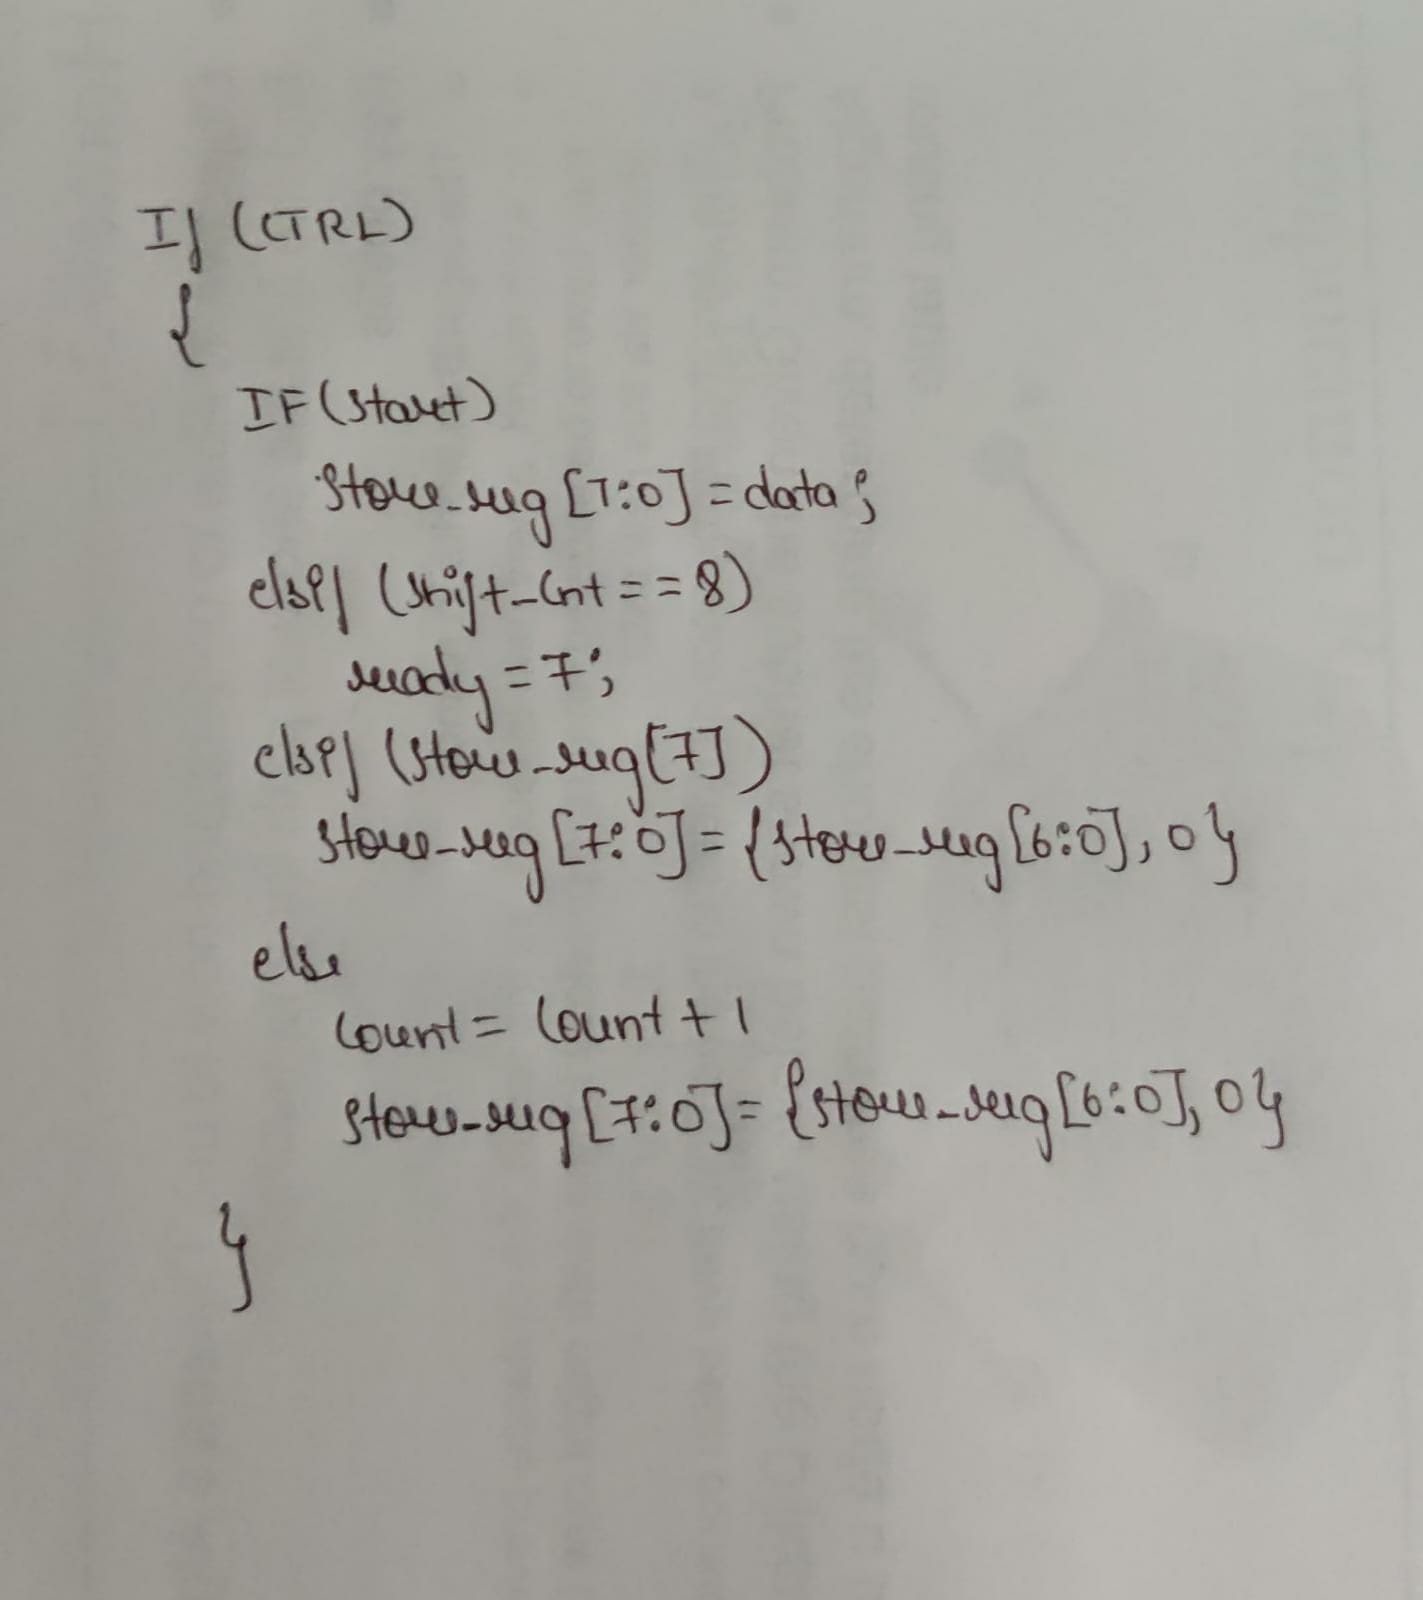 If (CTRL)
{
IF (start)
store_reg [7:0] = data ;
elsif (shift_Cnt == 8)
ready = 7 ;
elsif (store_reg[7])
store_reg [7:0] = {store_reg[6:0], 0}
else
Count = Count + 1
store_reg [7:0] = {store_reg[6:0], 0}
}